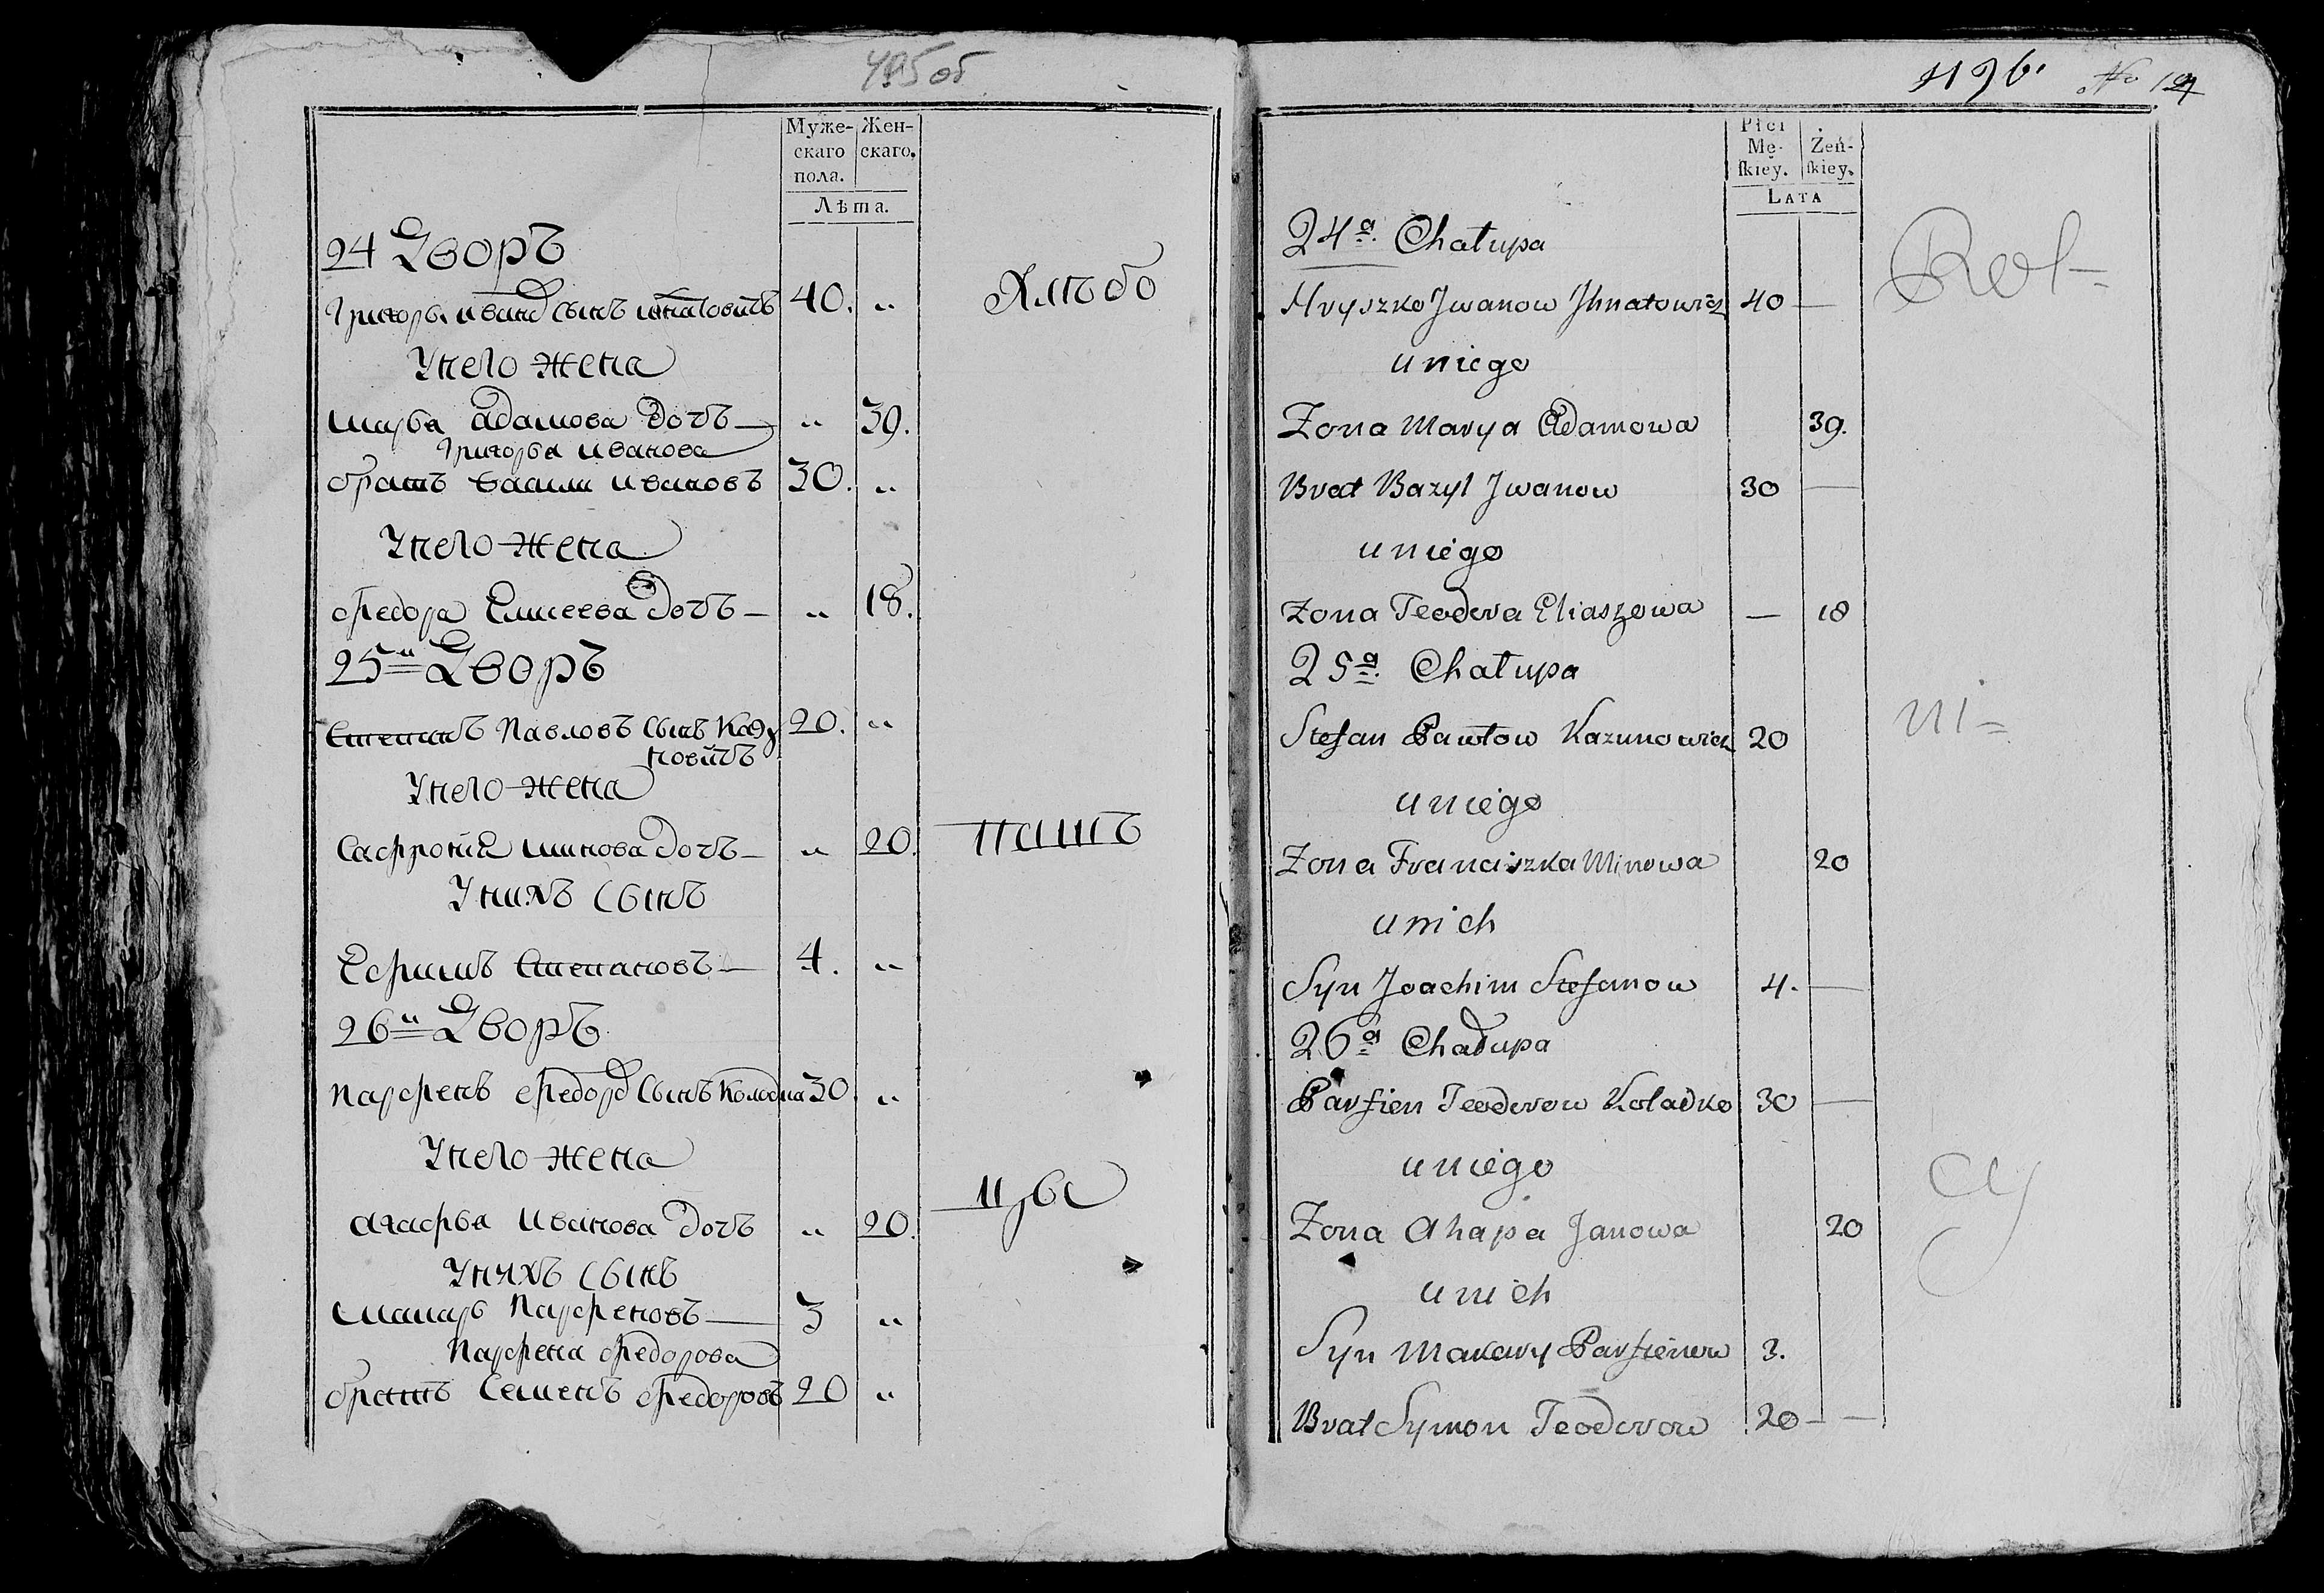 495об
Муже- Жен-
скаго скаго.
пола.
Лѣта.
24 Дворъ
Григорь Ивановъ сынъ Игнатовичъ 40. „
Хлѣбо
У него жена
Марья Адамова дочь — „ 39.
Григорья Иванова
братъ Василий Ивановъ 30. „
У него жена
Федора Елисеева дочь — „ 18.
25й Дворъ
Степанъ Павловъ сынъ Казу 20. „
новичъ
У него жена
Софрония Минова дочь — „ 20.
пашъ
У нихъ сынъ
Ефримъ Степановъ — 4. „
26й Дворъ
Парфенъ Федоров сынъ Колодка 30 „
У него жена
Агафья Иванова дочь „ 20.
цы
У нихъ сынъ
Макаръ Парфеновъ — 3 „
Парфена Федорова
братъ Семенъ Федоровъ 20 „
496. No
Płci
Mę- Żeń-
ſkiey. ſkiey.
LATA
24a. Chałupa
Rol-
Hryszko Jwanow Jhnatowicz 40 —
u niego
Zona Marya Adamowa 39.
Brat Bazyl Jwanow 30 —
u niego
Zona Teodora Eliaszowa — 18
25a. Chałupa
ni-
Stefan Pawłow Kazunowicz 20
u niego
Zona Franciszka Minowa 20
u nich
Syn Joachim Stefanow 4. —
26a Chałupa
Parfien Teodorow Koladko 30 —
u niego
cy
Zona Ahapa Janowa 20
u nich
Syn Makary Parfienow 3.
Brat Symon Teodorow 20 — —